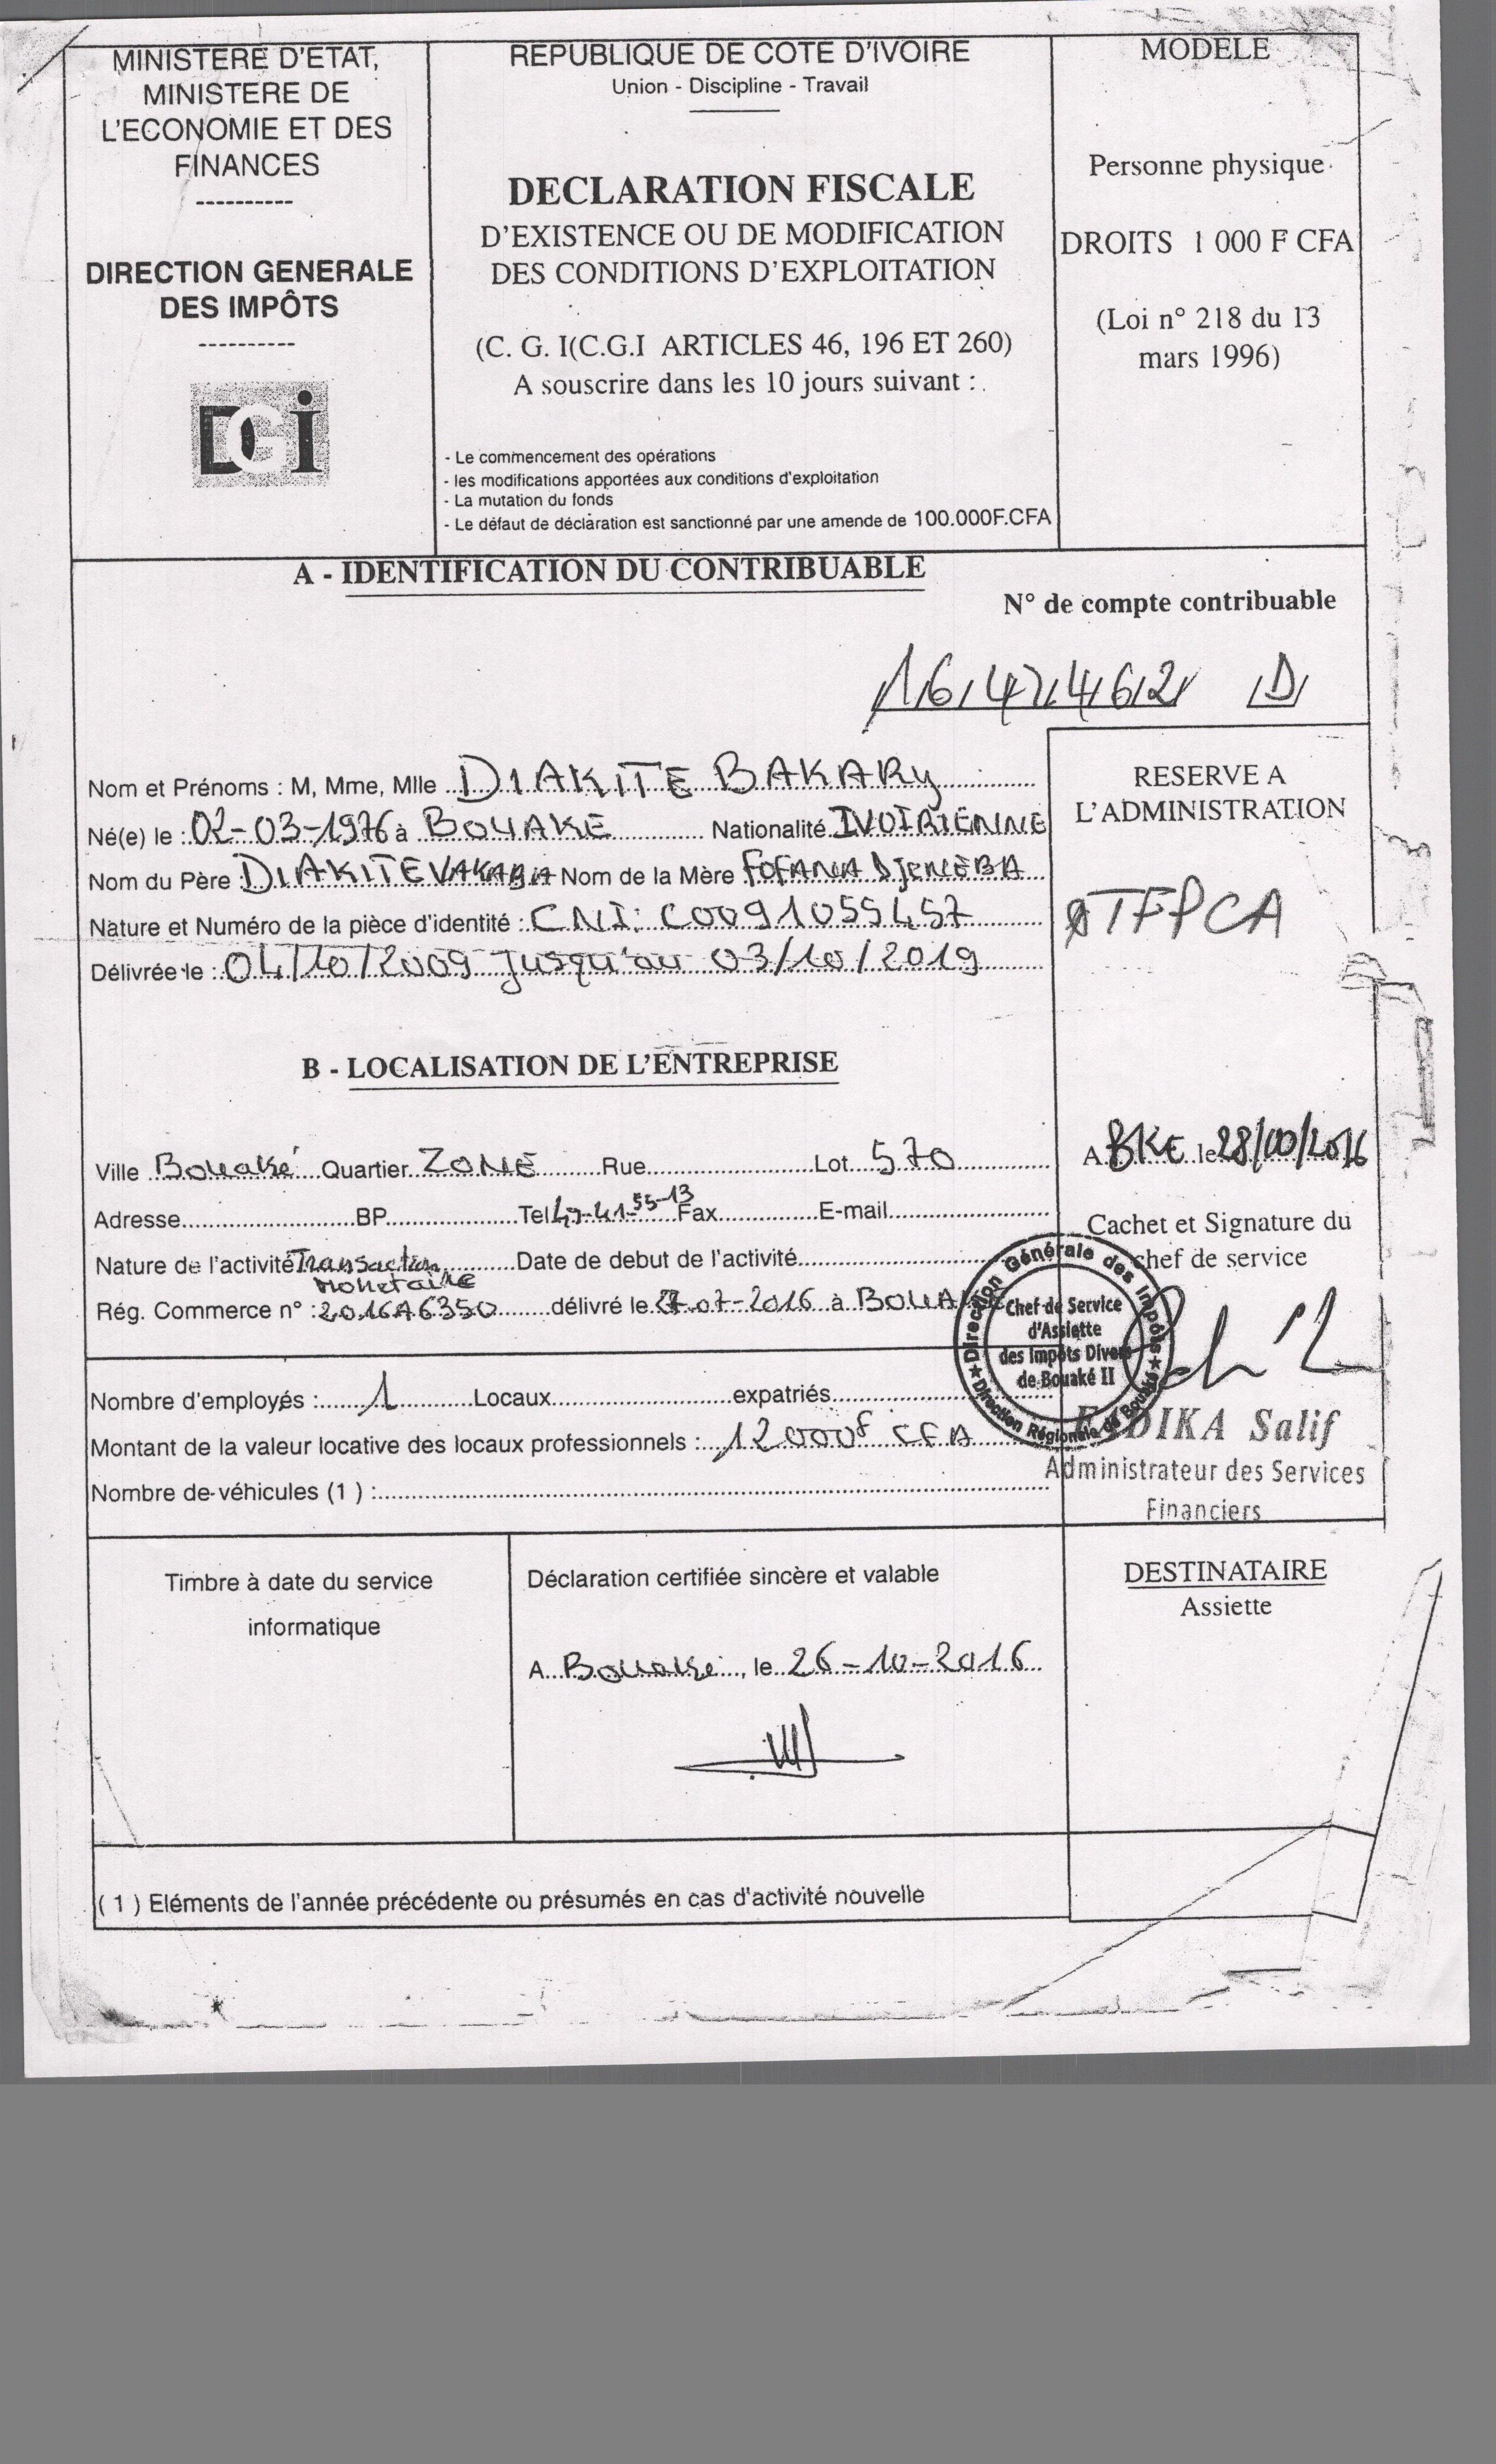 MINISTERE D'ETAT,
MINISTERE DE
L'ECONOMIE ET DES
FINANCES
----------
DIRECTION GENERALE
DES IMPÔTS
----------
DGI
REPUBLIQUE DE COTE D'IVOIRE
Union - Discipline - Travail
DECLARATION FISCALE
D'EXISTENCE OU DE MODIFICATION
DES CONDITIONS D'EXPLOITATION
(C. G. I(C.G.I ARTICLES 46, 196 ET 260)
A souscrire dans les 10 jours suivant :
- Le commencement des opérations
- les modifications apportées aux conditions d'exploitation
- La mutation du fonds
- Le défaut de déclaration est sanctionné par une amende de 100.000F.CFA
MODELE
Personne physique
DROITS 1 000 F CFA
(Loi n° 218 du 13
mars 1996)
A - IDENTIFICATION DU CONTRIBUABLE
N° de compte contribuable
D
Nom et Prénoms : M, Mme, Mlle DIAKITE BAKARY
Né(e) le : 02-03-1976 à BOUAKE Nationalité IVOIRIENNE
Nom du Père DIAKITE VAKABA Nom de la Mère FOFANA DJENEBA
Nature et Numéro de la pièce d'identité : CNI: C0091055457
Délivrée le : 04/10/2009 Jusqu'au 03/10/2019
RESERVE A
L'ADMINISTRATION
TFPCA
B - LOCALISATION DE L'ENTREPRISE
Ville Bouaké Quartier ZONE Rue Lot 570
Adresse BP Tel Fax E-mail
Nature de l'activité Transaction Date de debut de l'activité
Monetaire
Rég. Commerce n° : 2016A6350 délivré le 27-07-2016 à BOUAKE
A BKE le
Cachet et Signature du
chef de service
Direction Générale des Impôts
Chef de Service
d'Assiette
des Impôts Divers
de Bouaké II
Direction Régionale de Bouaké
Salif
Administrateur des Services
Financiers
Nombre d'employés : 1 Locaux expatriés
Montant de la valeur locative des locaux professionnels : 12000F CFA
Nombre de véhicules (1 ) :
Timbre à date du service
informatique
Déclaration certifiée sincère et valable
A Bouaké, le 26-10-2016
DESTINATAIRE
Assiette
( 1 ) Eléments de l'année précédente ou présumés en cas d'activité nouvelle